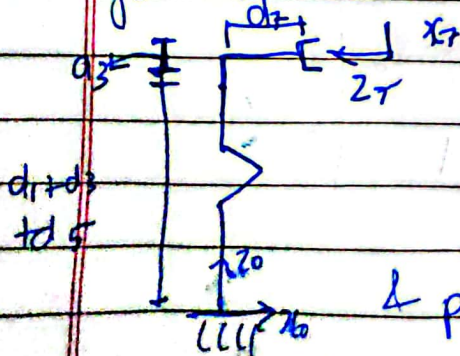 d7
x7
a3
z7
d1+d3
+d5
z0
x0
& p